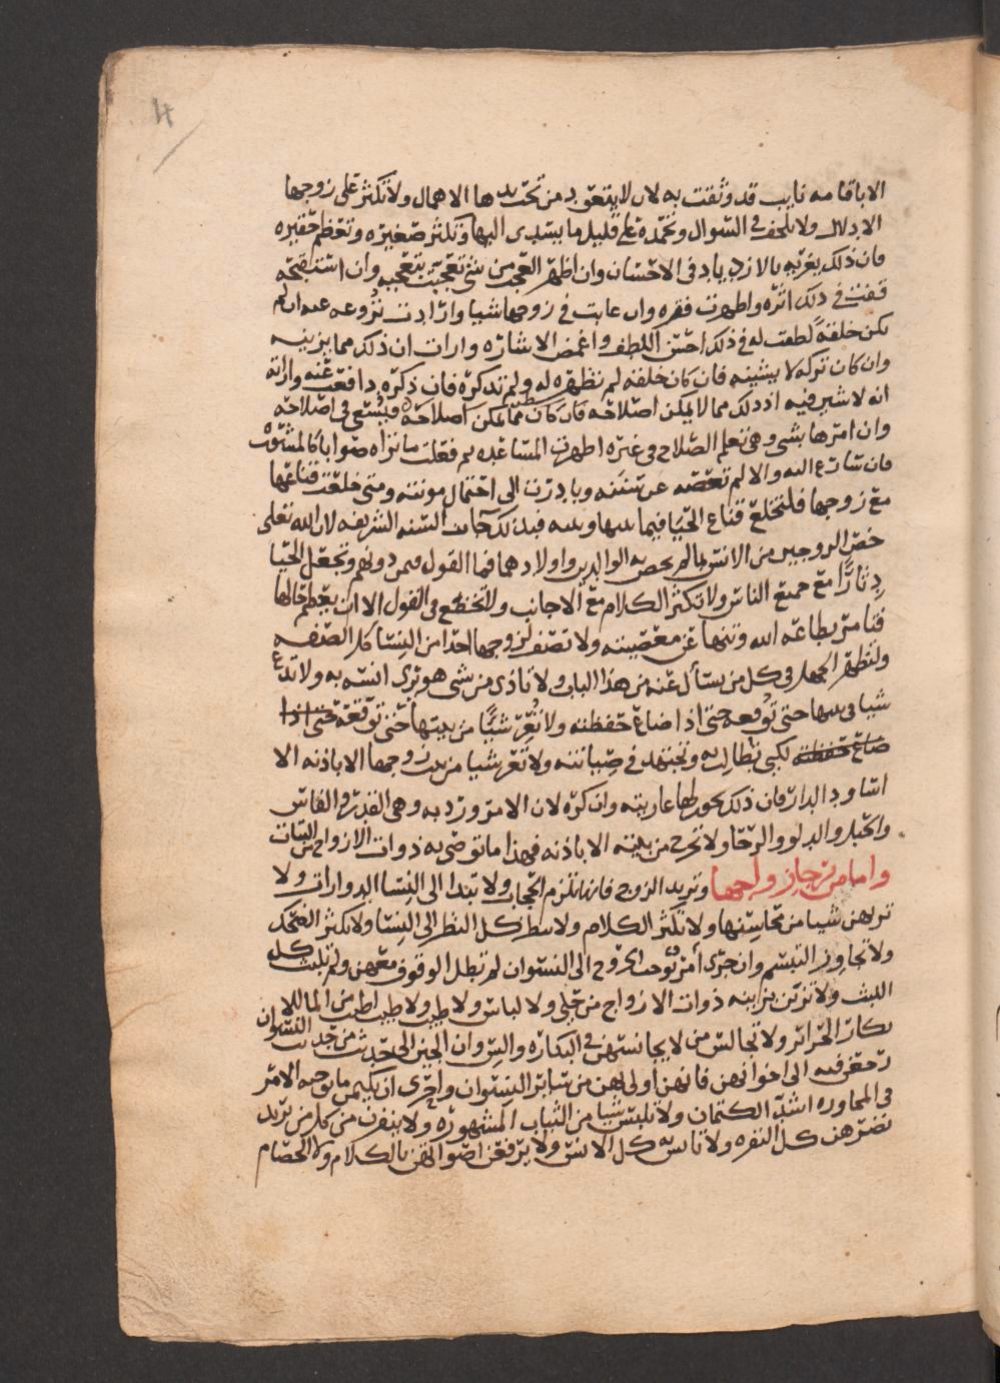 4
الا باقامه نايب قد وثقت به لان لا يتعود من تحت يدها الاهمال ولا تكثر على زوجها
الادلال ولا تلحف في السوال وتحمده على قليل ما يسدى اليها وتكثر صغيره وتعظم حقيره
فان ذلك يغريه بالازدياد في الاحسان وان اظهر العجب من شي تعجبت بتعجبه وان استقبحه
قفت في ذلك اثره واطهرت فقره وان عابت في زوجها شيا وارادت نزوعه عنه ان لم
يكن خلقة لطفت له في ذلك احسن اللطف واغمض الاشاره وارات ان ذلك مما يزينه
وان كان تركه لا يشينه فان كان خلقه لم تظهره له ولم تذكره فان ذكره دافعت عنه وارته
انه لا شين فيه اذ ذلك مما لا يمكن اصلاحه فان كان مما يمكن اصلاحه فيسعى في اصلاحه
وان امرها بشي وهي تعلم الصلاح في غيره اطهرت المساعده ثم فعلت ما تراه صوابا كالمشق
فان سارع الله والا لم تعصه عن سننه وبادرت الى احتمال موننته ومتى خلعت قناعها
مع زوجها فلتخلع قناع الحيا فيما بينها وبينه فبذلك جات السنه الشريفه لان الله تعلى
خص الزوجين من الانس بما لم يخص به الوالدين واولادهما فما القول فيمن دونهم وتجعل الحيا
دثارًا مع جميع الناس ولا تكثر الكلام مع الاجانب ولا تخضع في القول الا ان يعظم حالها
فتامر بطاعه الله وتنهها عن معصيته ولا تصف لزوجها احدا من النسا كل الصفه
ولتظهر الجهل في كل من يسأل عنه من هذا الباب ولا تاذى من شي هو ترى انسه به ولا تدع
شيا في بيتها حتى توقعه حتى اذا ضاع حفظته ولا تعر شيًا من بيتها حتى توقعه حتى اذا
ضاع حفظته لكي تطالب به وتجتهد في صيانته ولا تعر شيا من بيت زوجها الا باذنه الا
اساود الدار فان ذلك يجوز لها عاريته وان كره لان الامر ورد به وهي القدر والفاس
والحبل والدلو والرحا ولا تخرج من بيته الا باذنه فهذا ما توصى به ذوات الازواج من البنات
واما من نرجا زواجها وتريد الزوج فانها تلزم الحجاب ولا تبدا الى النسا الدوارات ولا
تريهن شيا من محاسنها ولا تكثر الكلام ولا تنظر كل النظر الى النسا ولا تكثر الضحك
ولا تجاوز التبسم وان جرى امر توجب الخروج الى النسوان لم تطل الوقوف معهن ولم تلبث كل
اللبث ولا تتزين بزينه ذوات الازواج من حلي ولا لباس ولا طيب ولا طيب اطيب من الما لان
بكار الحراير ولا تجالس من لا يجانسهن في البكاره والسن وان الجين الى تحدث من حديث النسوان
رجعن فيه الى اخواتهن فانهن اولى بهن من ساير النسوان واحرى ان يكتمن ما توجبه الامر
في المحاوره اشد الكتمان ولا تلبس شيا من الثياب المشهوره ولا ينفرن من كل من تريد
تضرهن كل النفره ولا تانس به كل الانس ولا يرفعن اصواتهن بالكلام ولا الخصام